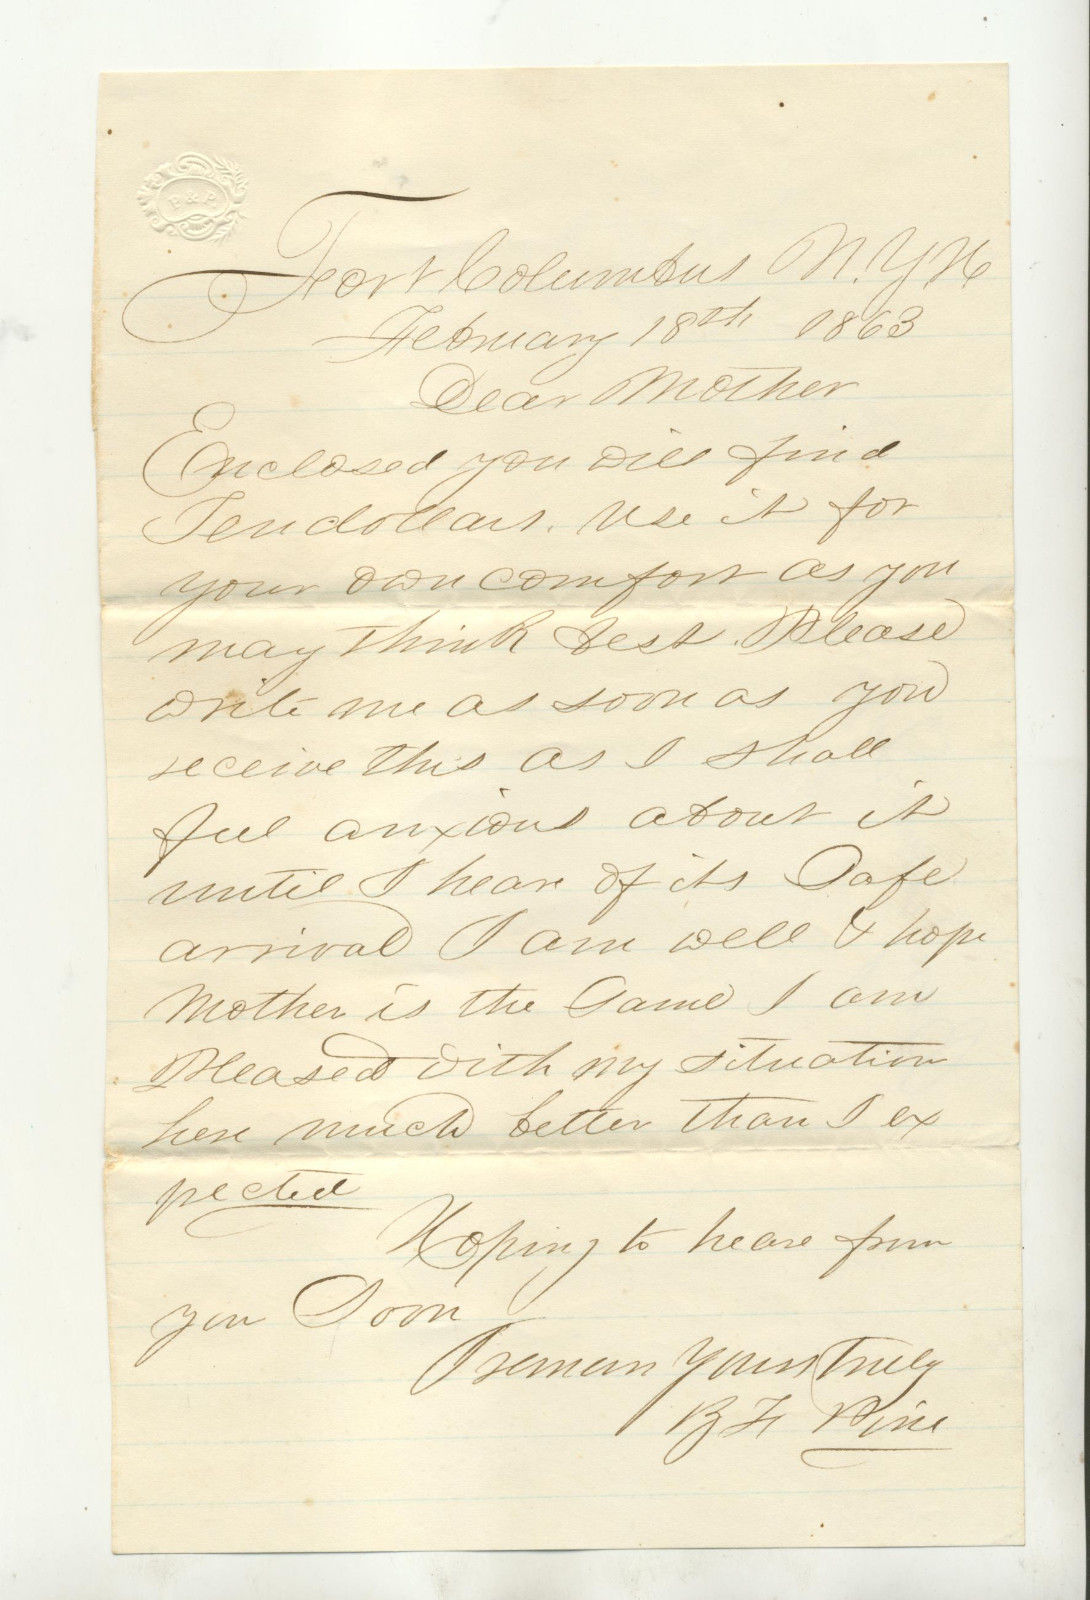 P & P
Fort Columbus N.Y.H
February 18th 1863
Dear Mother
Enclosed you will find
Ten dollars. Use it for
your own comfort as you
may think best. Please
write me as soon as you
receive this as I shall
feel anxious about it
until I hear of its Safe
arrival I am well & hope
Mother is the Same I am
Pleased with my situation
here much better than I ex
pected
Hoping to hear from
you Soon
I remain Yours Truly
B F Pine